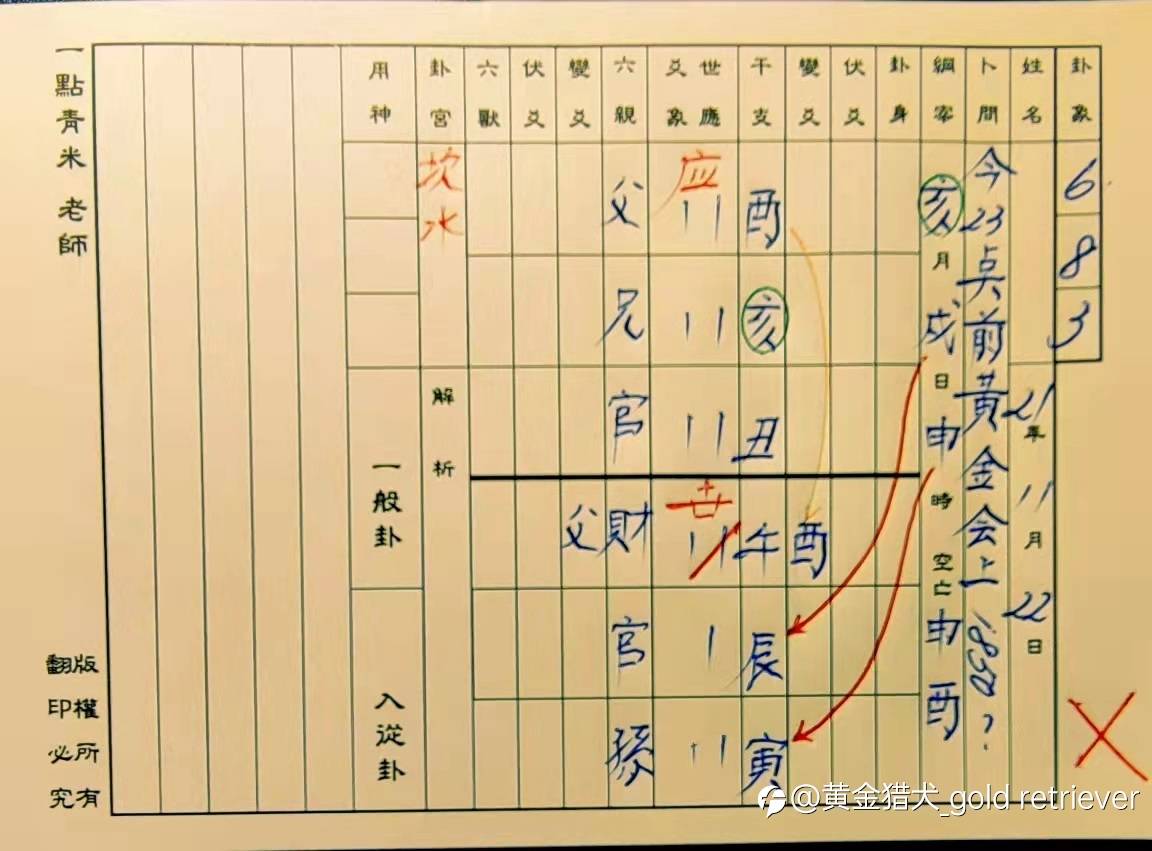 卦象 6 8 3
姓名 21年11月22日
卜問 今23点前黄金会上1850?
綱寀 亥月戌日申時空亡申酉
卦身
伏爻
變爻 酉
干支 酉 亥 丑 午 辰 寅
世應爻象 应 世
六親 父 兄 官 財 官 孫
變爻 父
伏爻
六獸
卦宮 坎水
解析
用神
一般卦
入從卦
一點青米 老師
版權所有
翻印必究
@黄金猎犬_gold retriever